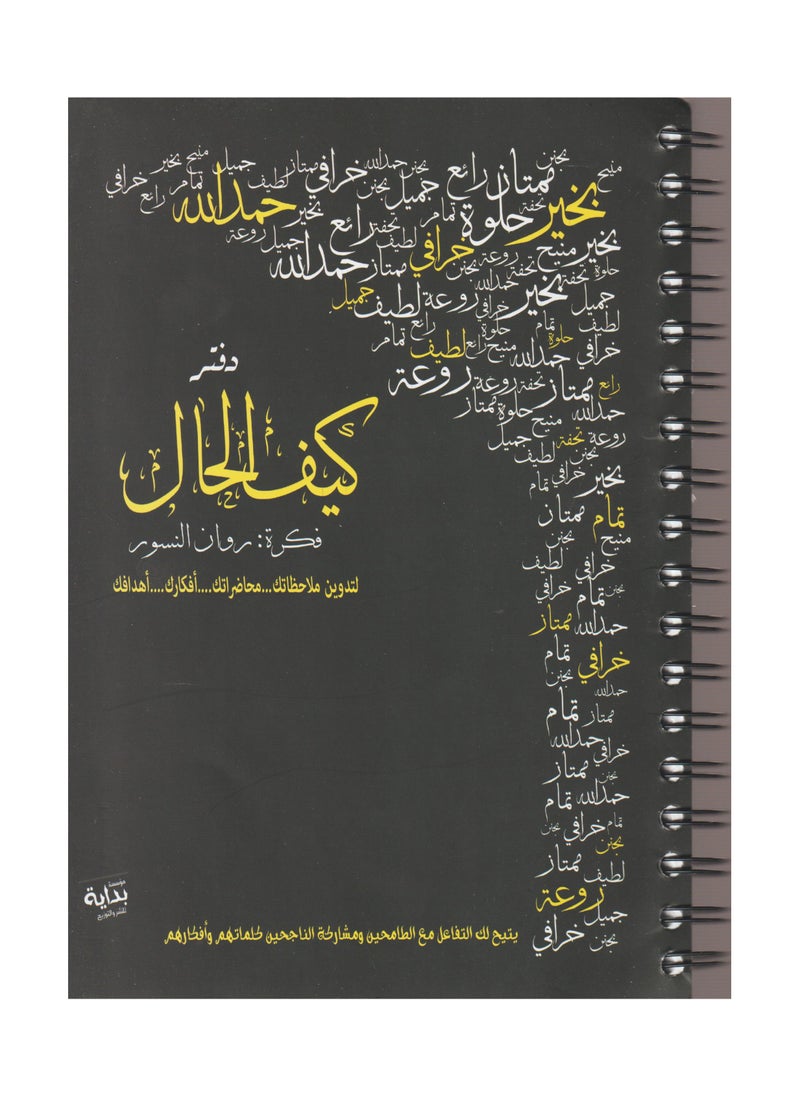 دفتر
كيف الحال
فكرة: روان النسور
لتدوين ملاحظاتك...محاضراتك....أفكارك....أهدافك
منيح بجنن ممتاز رائع جميل بجنن حمدالله خرافي ممتاز لطيف جميل منيح تمام بخير رائع خرافي
بخير تحفة حلوة تمام خرافي لطيف تحفة رائع بخير جميل روعة حمدالله
بخير منيح روعة تحفة بجنن ممتاز حمدالله
حلوة تحفة بخير حمدالله
جميل خرافي روعة لطيف جميل
لطيف تمام حلوة رائع تمام
خرافي حلوة حمدالله منيح رائع لطيف
رائع ممتاز تحفة روعة روعة
حمدالله منيح حلوة ممتاز
روعة تحفة لطيف جميل
بجنن
بخير خرافي تمام
تمام ممتاز
منيح بجنن
خرافي لطيف
بجنن تمام خرافي
حمدالله ممتاز
خرافي تمام
بجنن
حمدالله
ممتاز تمام
حمدالله
خرافي
بجنن ممتاز
حمدالله تمام
تمام خرافي بجنن
بجنن
لطيف ممتاز
روعة
جميل
بجنن خرافي
يتيح لك التفاعل مع الطامحين ومشاركة الناجحين كلماتهم وأفكارهم
مؤسسة
بداية
للنشر والتوزيع